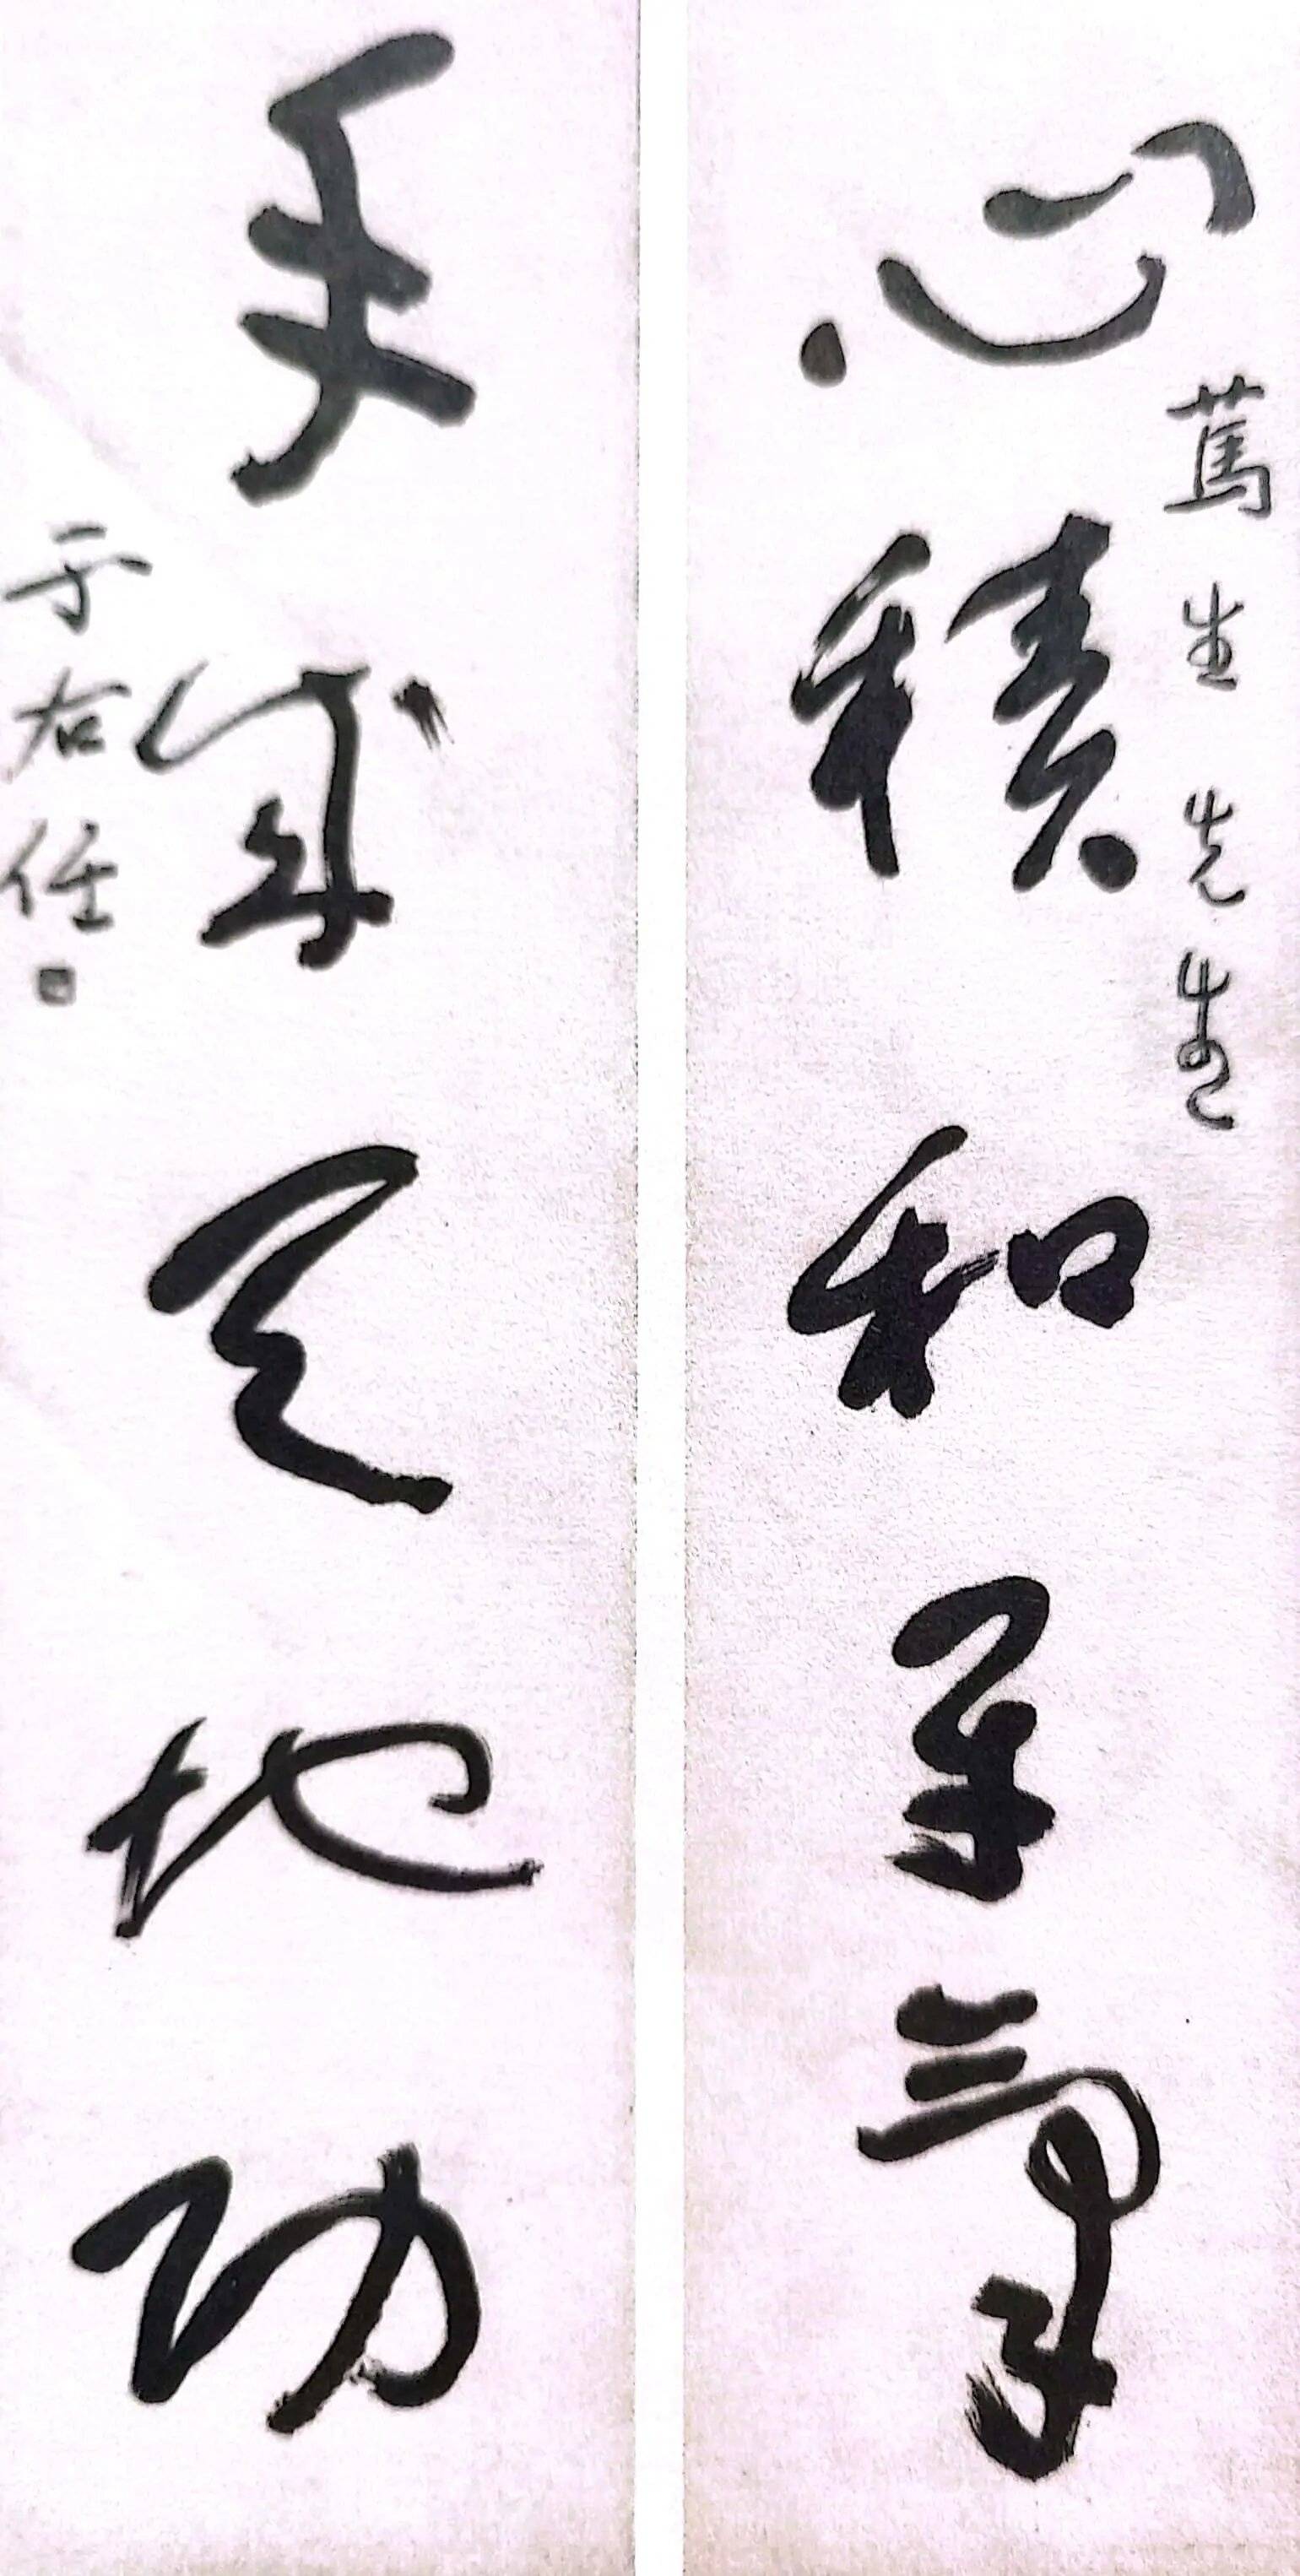 心積和平氣
蔦生先生
手成天地功
于右任